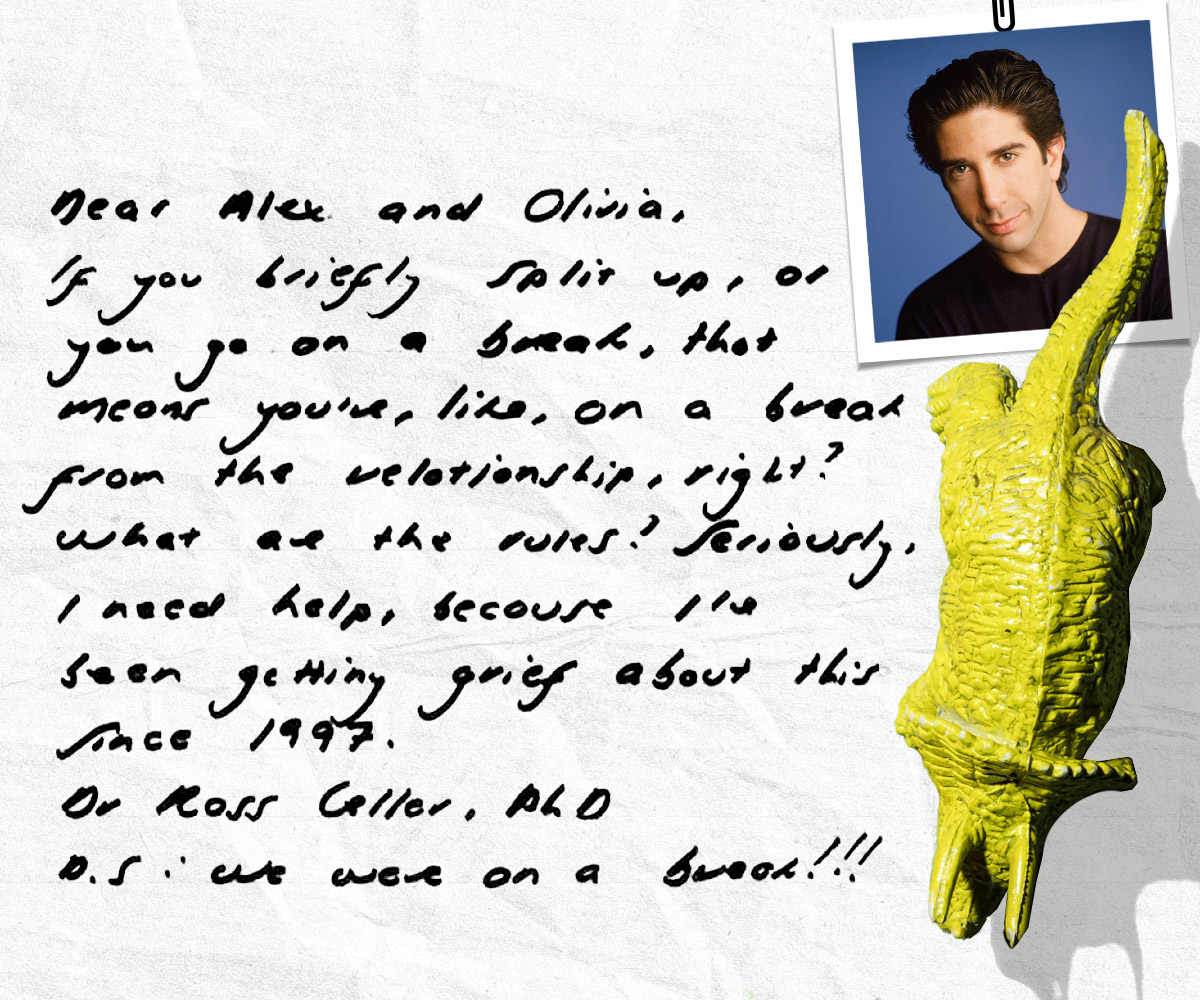 Dear Alex and Olivia,
If you briefly split up, or
you go on a break, that
means you're, like, on a break
from the relationship, right?
What are the rules? Seriously,
I need help, because I've
been getting grief about this
since 1997.
Dr Ross Geller, PhD
P.S : we were on a break!!!